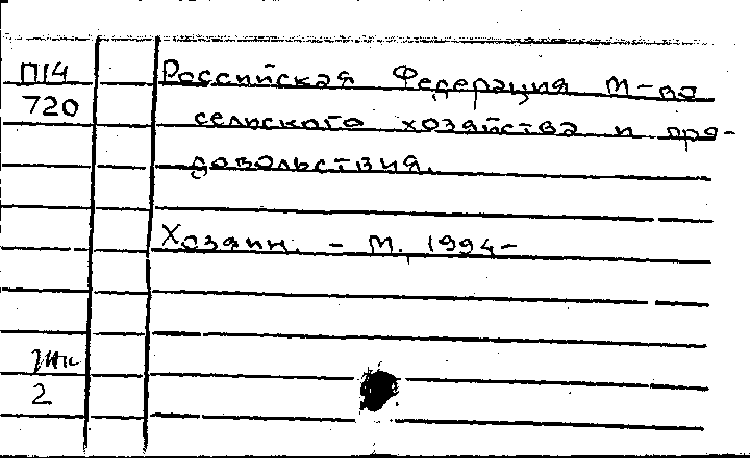 П14
720
Российская Федерация М-во
сельского хозяйства и про-
довольствия.
Хозяин. - М. 1994-
2